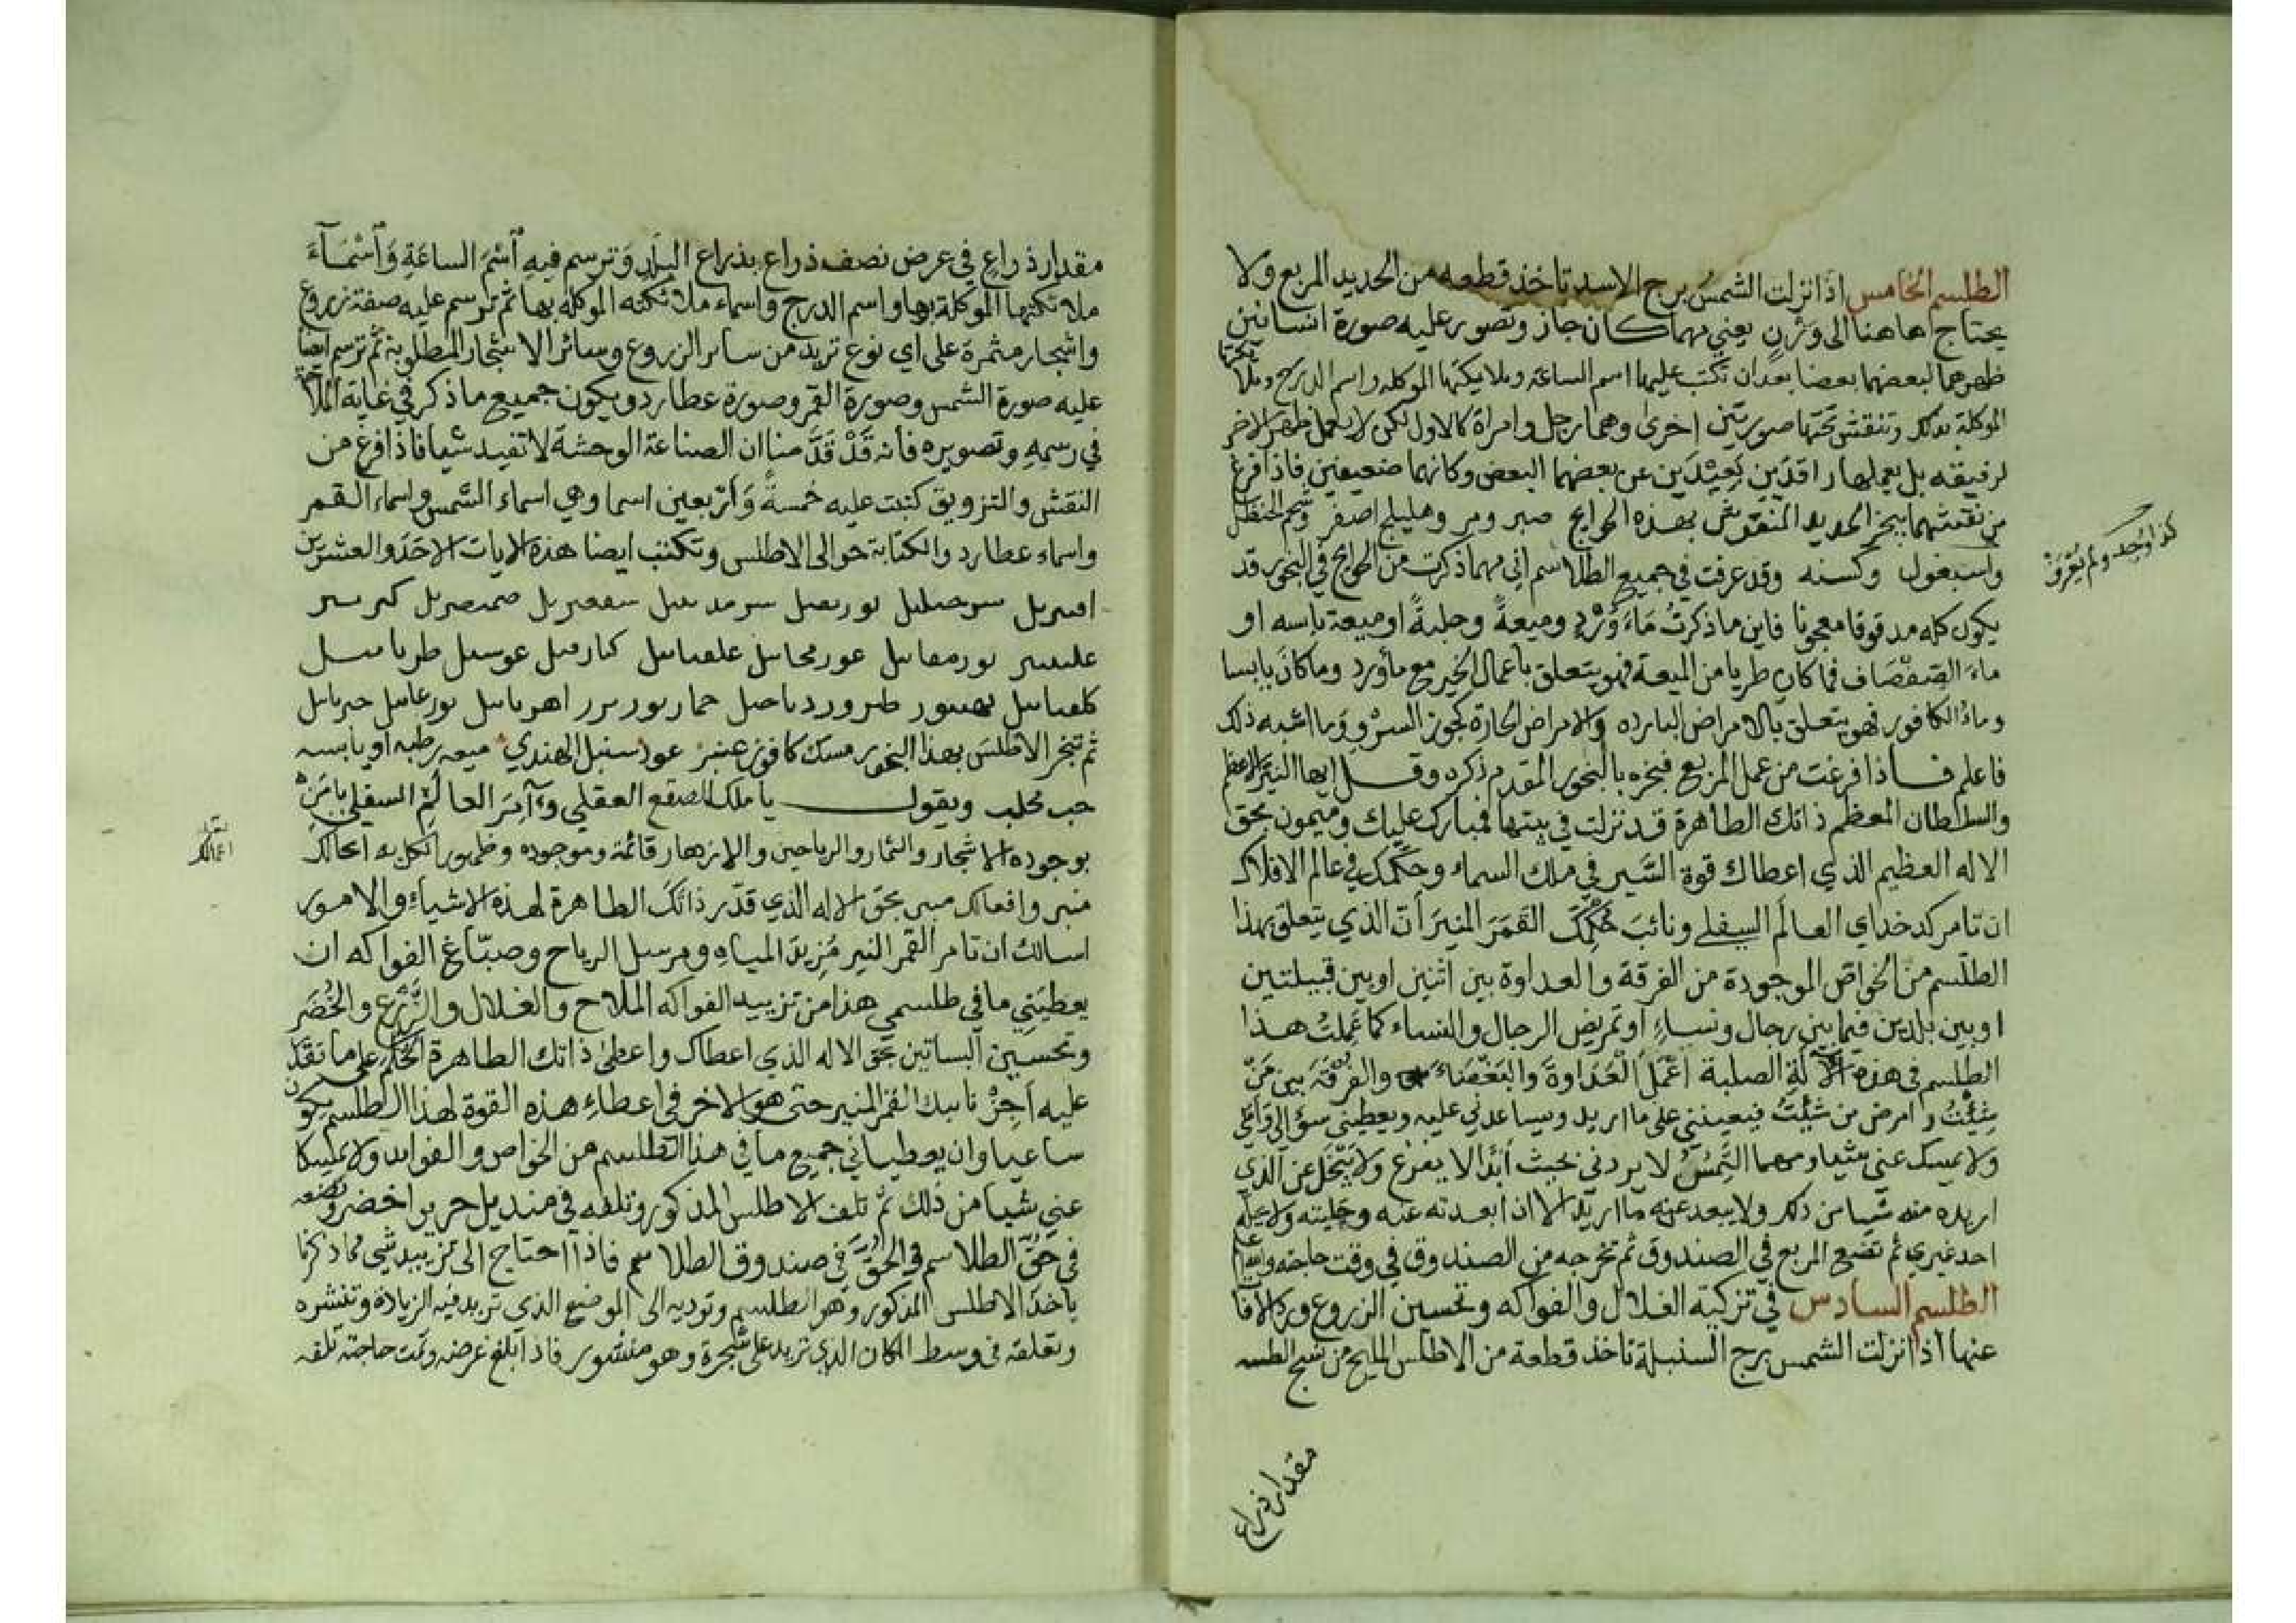 الطلسم الخامس اذا نزلت الشمس برج الاسد تاخذ قطعه من الحديد المربع ولا
يحتاج هاهنا الى وزن يعني مهما كان جاز وتصور عليه صورة انسانين
ظهرهما لبعضهما بعضا بعد ان تكتب عليها اسم الساعة وملايكتها الموكله واسم الدرج وملايكتها
الموكلة بذلك وتنقش تحتها صورتين اخرى وهما رجل وامراة كالاول لكن لا يعمل ظهر الاخر
لرفيقه بل يعملها راقدين بعيدين عن بعضهما البعض وكانهما ضعيفين فاذا افرغ
من نقشهما يبخر الحديد المنقوش بهذه الحوايج صبر ومر وهليلج اصفر وشحم الحنظل
واسبغول وكسنه وقد عرفت في جميع الطلاسم اني مهما ذكرت من الحوايج في البخور قد
كذا وجد ولم يعرف
يكون كله مدقوقا معجونا فاين ما ذكرت ماء ورد وميعة وحلبة او ميعة يابسه او
ماء الصفصاف فما كان طريا من الميعة فهو يتعلق باعمال الخير مع ماورد وما كان يابسا
وماء الكافور فهو يتعلق بالامراض البارده والامراض الحارة كجوز السرو وما اشبه ذلك
فاعلم فاذا فرغت من عمل المربع فبخره بالبخور المقدم ذكره وقل ايها النير الاعظم
والسلطان المعظم ذاتك الطاهرة قد نزلت في بيتها فمبارك عليك وميمون بحق
الاله العظيم الذي اعطاك قوة السير في ملك السماء وحكمك في عالم الافلاك
ان تامر كدخداي العالم السفلي ونائب حكمك القمر المنير ان الذي يتعلق بهذا
الطلسم من الخواص الموجودة من الفرقة والعداوة بين اثنين او بين قبيلتين
او بين بلدين فيما بين رجال ونساء او تمريض الرجال والنساء كما عملت هذا
الطلسم في هذه الالة الصلبة اعمل العداوة والبغضاء والفرقة بين من
شئت وامرض من شئت فيعينني على ما اريد ويساعدني عليه ويعطيني سؤالي واملي
ولا يمسك عني شيا ومهما التمس لا يردني بحيث ابدا لا يفزع ولا يبخل عن الذي
اريده منه شيا من ذلك ولا يبعد عنه ما اريد الا ان ابعدته عنه وخليته ولا يحله
احد غيري ثم تضع المربع في الصندوق ثم تخرجه من الصندوق في وقت حاجته والله اعلم
الطلسم السادس في تزكية الغلال والفواكه وتحسين الزروع ورد الافات
عنها اذا نزلت الشمس برج السنبلة تاخذ قطعة من الاطلس المليح من نسج
مقدار ذراع
مقدار ذراع في عرض نصف ذراع بذراع البلد وترسم فيه اسم الساعة واسماء
ملائكتها الموكلة بها واسم الدرج واسماء ملائكته الموكله بها ثم ترسم عليه صفة زروع
واشجار مثمرة على اي نوع تريد من سائر الزروع وسائر الاشجار المطلوبة ثم ترسم ايضا
عليه صورة الشمس وصورة القمر وصورة عطارد ويكون جميع ما ذكر في غاية
في رسمه وتصويره فانه قد قدمنا ان الصناعة الوحشة لا تفيد شيا فاذا فرغ من
النقش والتزويق كتبت عليه خمسة واربعين اسما وهي اسماء الشمس واسماء القمر
واسماء عطارد والكتابة حوالى الاطلس وتكتب ايضا هذه الايات الاحد والعشرين
ثم تبخر الاطلس بهذا البخور مسك كافور عنبر عود سنبل الهندي ميعه رطبه او يابسه
حب محلب ويقول يا ملك الصقع العقلي وآمر العالم السفلي يا من
بوجوده الاشجار والثمار والرياحين والازهار قائمة وموجوده وظهور الكل به اعمالك
اعمالك
منير وافعالك بحق الاله الذي قدر ذاتك الطاهرة لهذه الاشياء والامور
اسالك ان تامر القمر النير مزيد المياه ومرسل الرياح وصباغ الفواكه ان
يعطيني ما في طلسمي هذا من تزييد الفواكه الملاح والغلال والزرع والخضر
وتحسين البساتين بحق الاله الذي اعطاك واعطى ذاتك الطاهرة الحكم على ما تقدر
عليه اجز نائبك القمر المنير حتى هو الاخر في اعطاء هذه القوة لهذا الطلسم يكون
ساعيا وان يعطياني جميع ما في هذا الطلسم من الخواص والفوايد ولا يمسكا
عني شيا من ذلك ثم تلف الاطلس المذكور وتلفه في منديل حرير اخضر وتضعه
في حق الطلاسم في الحق في صندوق الطلاسم فاذا احتاج الى تزييد شي مما ذكرنا
ياخذ الاطلس المذكور وهو الطلسم وتوديه الى الموضع الذي تريد فيه الزيادة وتنشره
وتعلقه في وسط المكان الذي تريد على شجرة وهو منشور فاذا بلغ غرضه وتمت حاجته تلفه